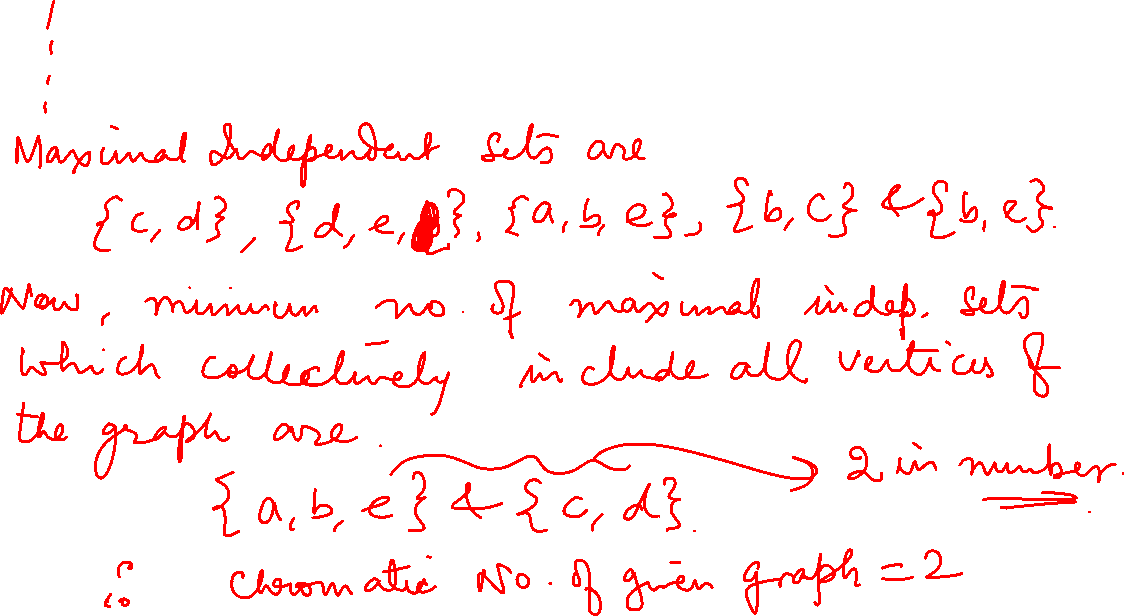 Maximal Independent sets are
{c, d}, {d, e, }, {a, b, e}, {b, c} & {b, e}.
Now, minimum no. of maximal indep. sets
which collectively include all vertices of
the graph are.
{a, b, e} & {c, d}. → 2 in number.
∴ Chromatic No. of given graph = 2